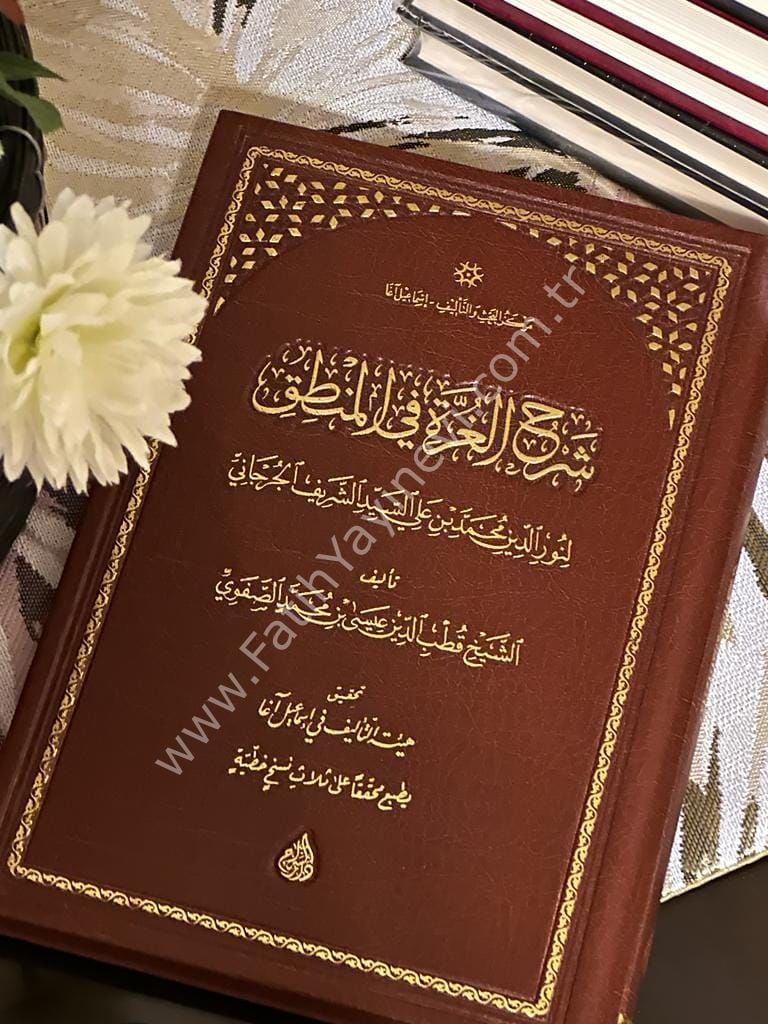 مركز البحث والتأليف - إسماعيل آغا
شرح الغرة في المنطق
لنور الدين محمد بن علي السيد الشريف الجرجاني
تأليف
الشيخ قطب الدين عيسى بن محمد الصفوي
تحقيق
هيئة التأليف في إسماعيل آغا
يطبع محققاً على ثلاث نسخ خطية
www.FatihYayinevi.com.tr